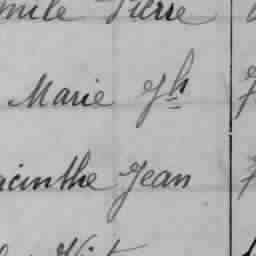 Emile Pierre
Marie Jh
acinthe Jean